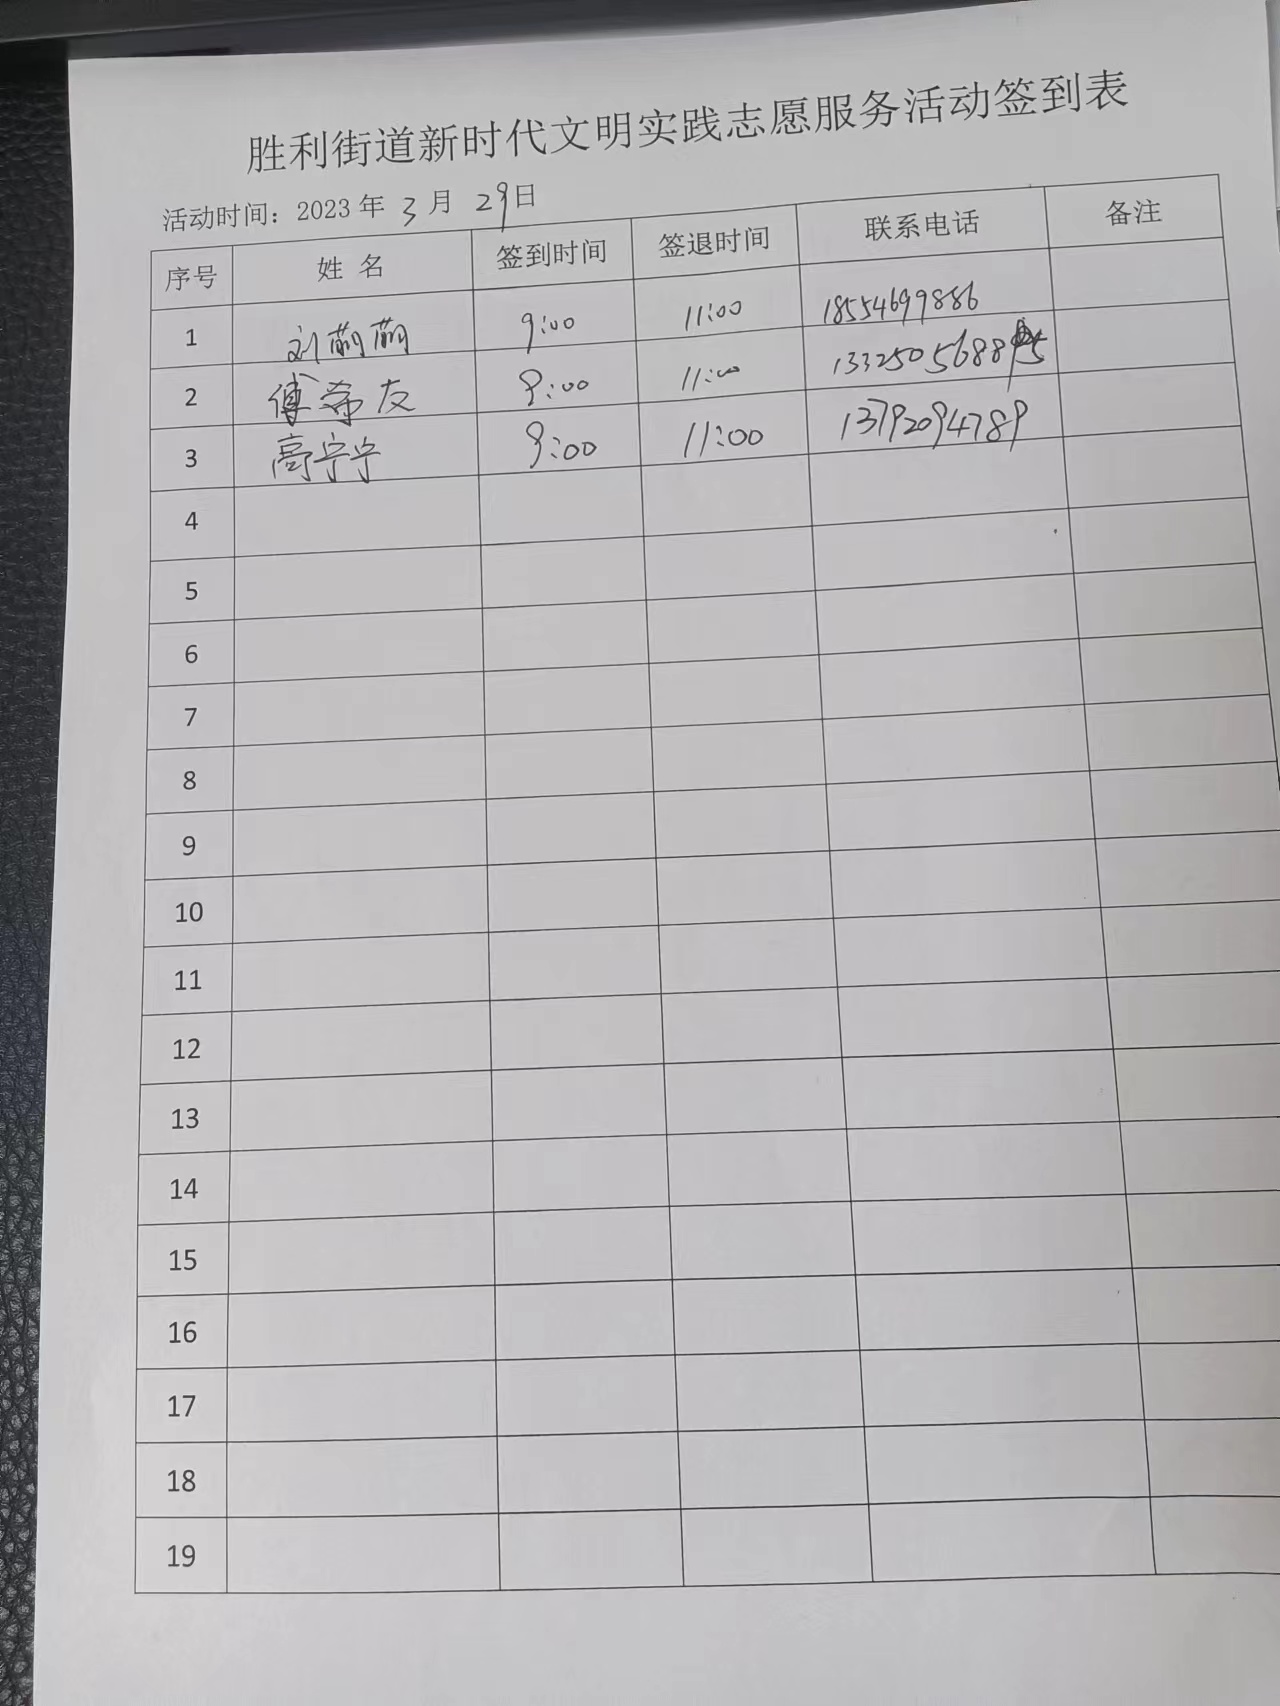 胜利街道新时代文明实践志愿服务活动签到表
活动时间：2023 年 3 月 29日
序号 姓 名 签到时间 签退时间 联系电话 备注
1 刘萌萌 9:00 11:00 18554699886
2 傅希友 9:00 11:00
3 高宁宁 9:00 11:00 13792094789
4
5
6
7
8
9
10
11
12
13
14
15
16
17
18
19